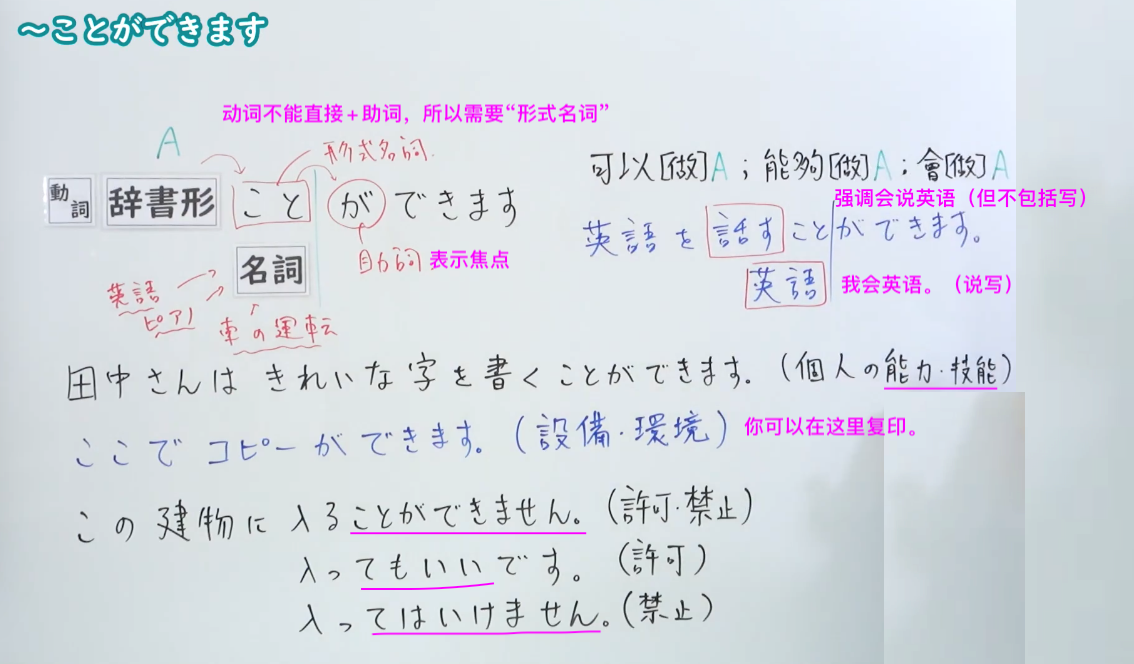 ～ことができます
动词不能直接＋助词，所以需要“形式名词”
A
形式名詞
動詞 辞書形 こと ができます
名詞
助詞 表示焦点
英語
ピアノ
車の運転
可以[做]A；能夠[做]A；會[做]A
强调会说英语（但不包括写）
英語を話すことができます。
英語 我会英语。（说写）
田中さんは きれいな字を書くことができます。（個人の能力・技能）
ここで コピーができます。（設備・環境） 你可以在这里复印。
この建物に 入ることができません。（許可・禁止）
入ってもいいです。（許可）
入ってはいけません。（禁止）